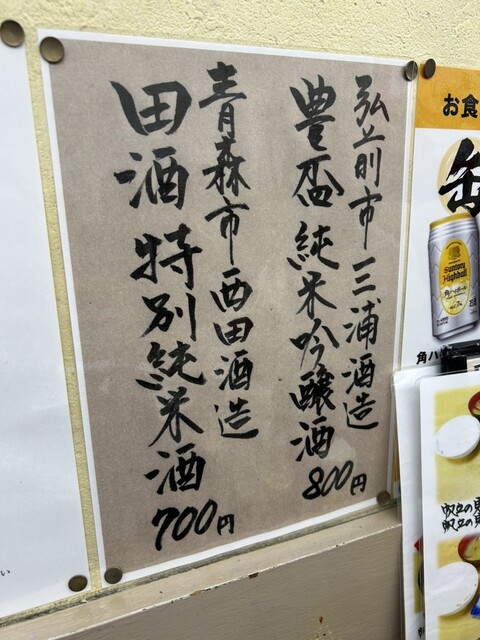 弘前市三浦酒造
豊盃純米吟醸酒
800円
青森市西田酒造
田酒特別純米酒
700円
お食
缶
Suntory
Highball
角ハ
帆立の
帆立の
い